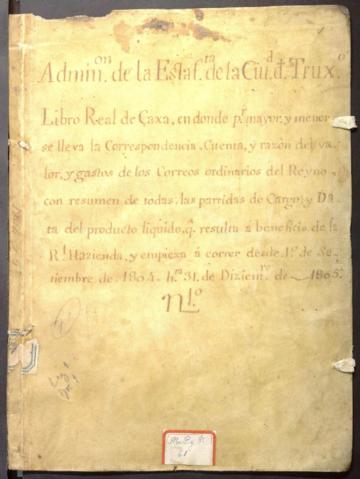 Admin.on de la Estaf.ta de la Ciu.d d. Trux.o
Libro Real de Caxa, en donde p.r mayor, y menor
se lleva la Correspondencia, Cuenta, y razón del va-
lor, y gastos de los Correos ordinarios del Reyno,
con resumen de todas las partidas de Cargo, y Da-
ta del producto liquido, q.e resulta à beneficio de la
R.l Hazienda, y empieza á correr desde 1.o de Se-
tiembre de 1804. h.ta 31. de Diziem.re de 1805.
N.1.o